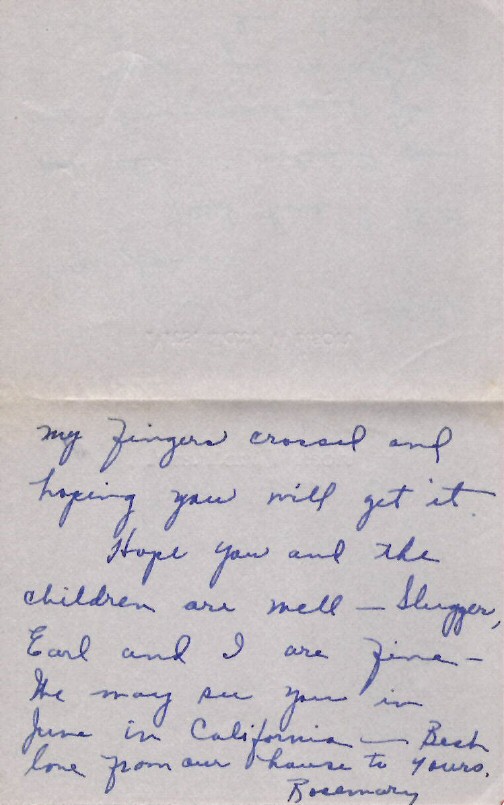 my fingers crossed and
hoping you will get it.
Hope you and the
children are well — Slugger,
Earl and I are fine —
We may see you in
June in California — Best
love from our house to yours.
Rosemary